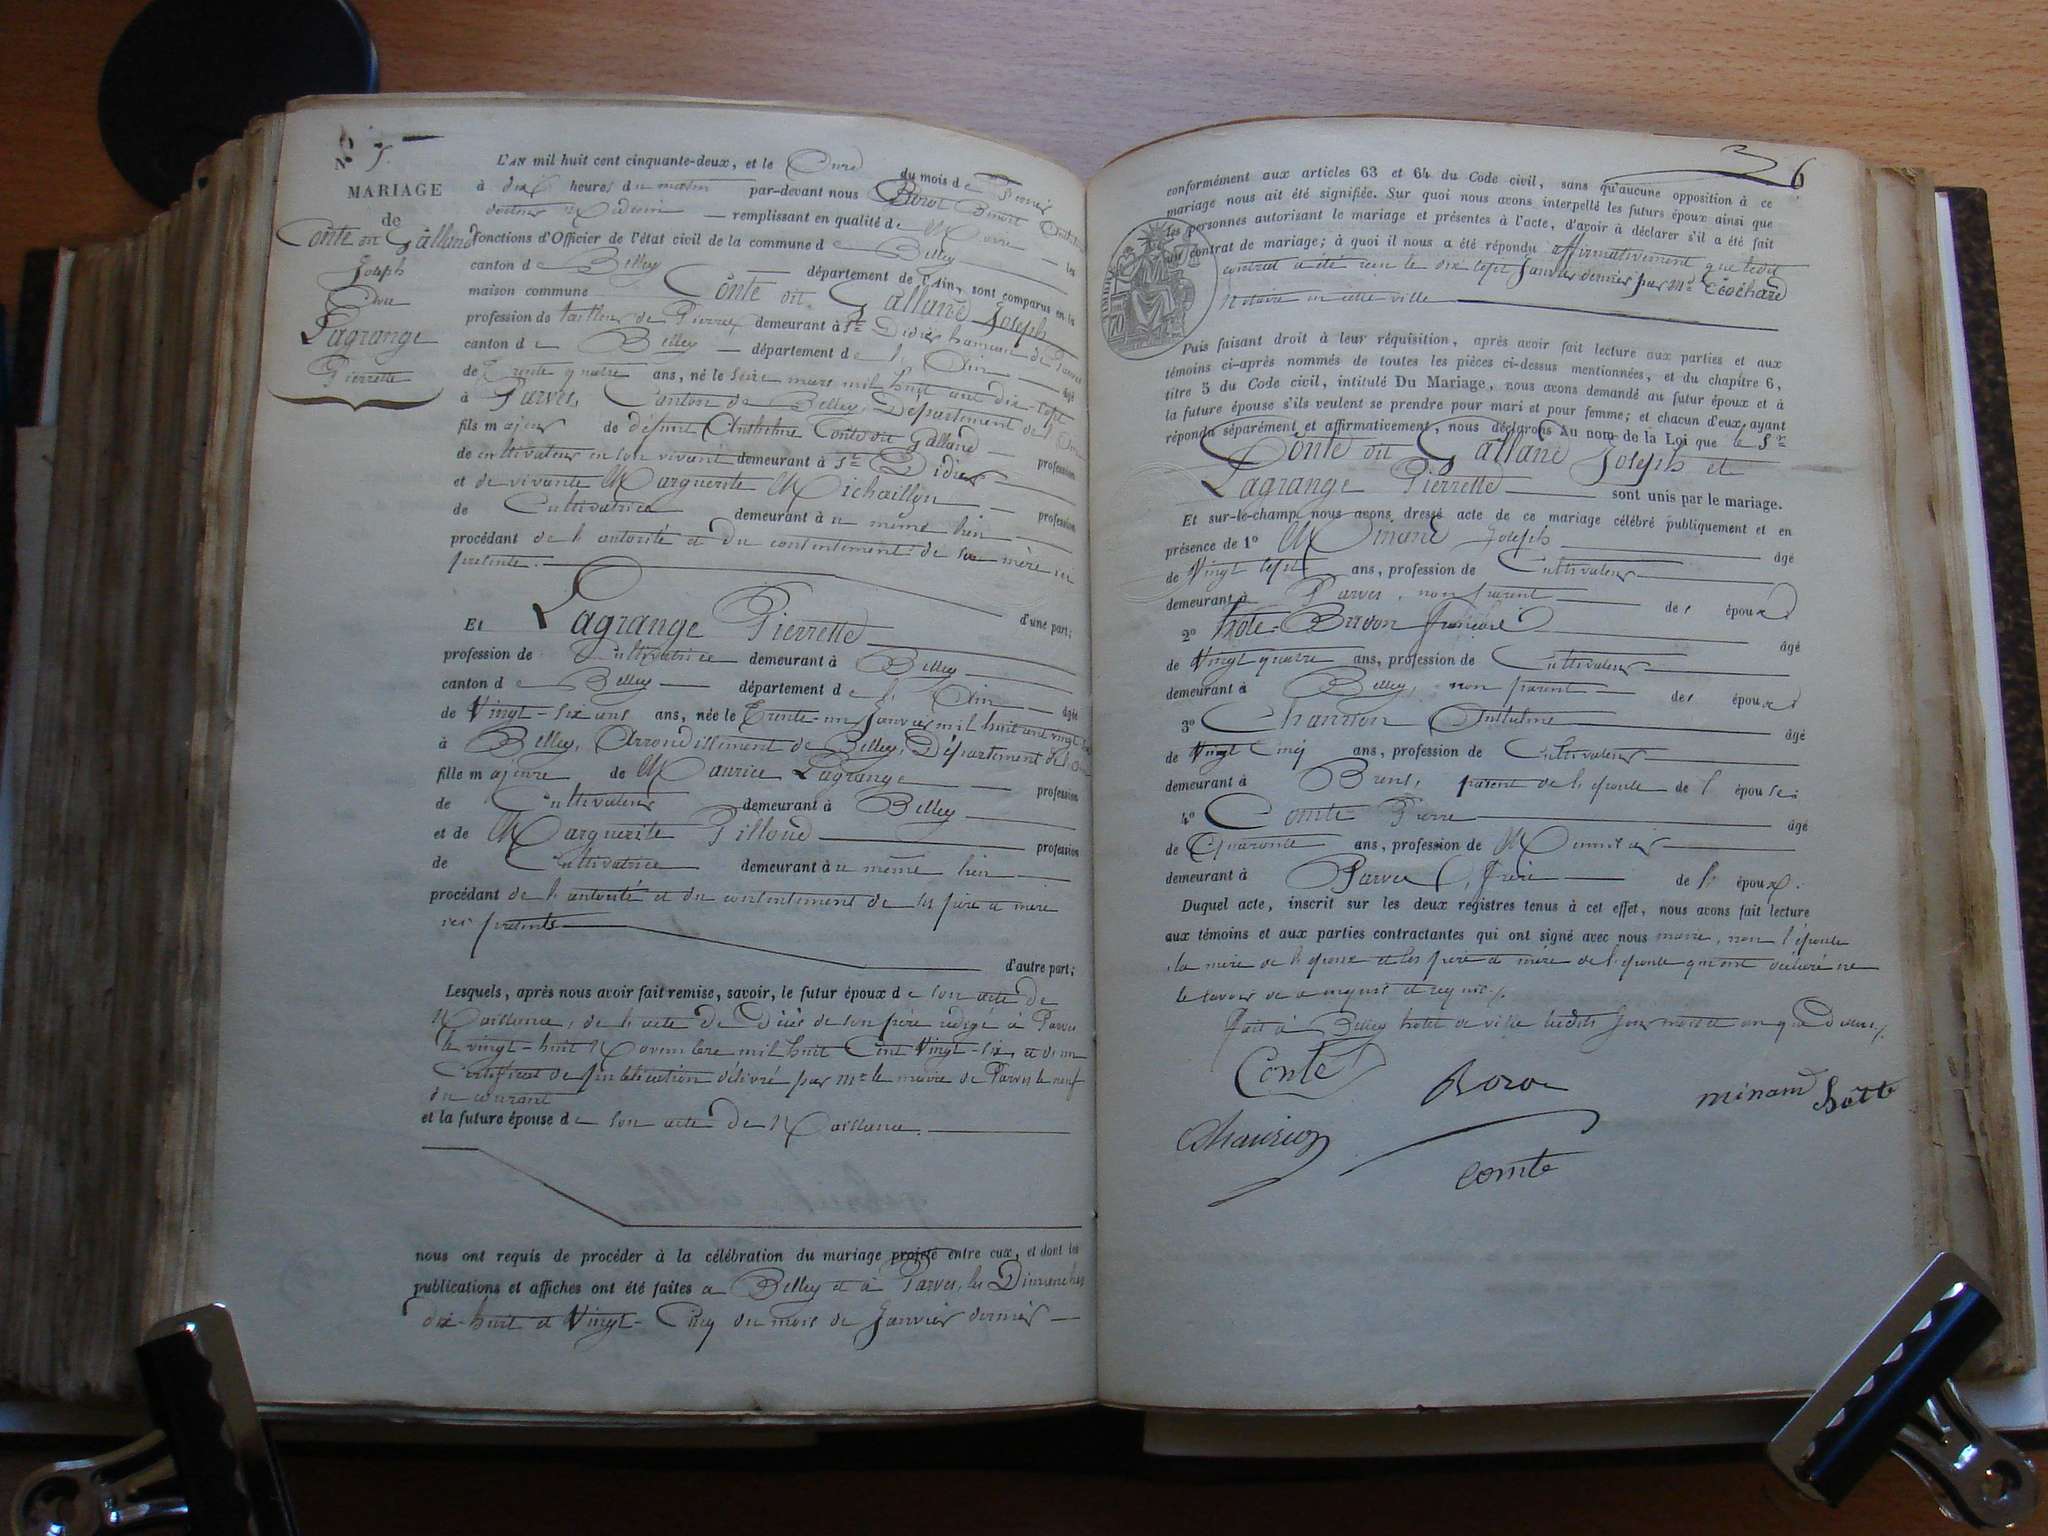 N° 5.
MARIAGE
de
Conte dit Galland
Joseph
Avec
Lagrange
Pierrette
L'AN mil huit cent cinquante-deux, et le Onze du mois de Février
à dix heures du matin par-devant nous Borot Benoit Anthelme
docteur Médecin remplissant en qualité de Maire les
fonctions d'Officier de l'état civil de la commune de Belley
canton de Belley département de l'Ain, sont comparus en la
maison commune Conte dit Galland Joseph
profession de tailleur de Pierres demeurant à St Didier hameau de Parves
canton de Belley département de l'Ain âgé
de Trente quatre ans, né le seize mars mil huit cent dix-sept
à Parves, Canton de Belley, Département de l'Ain
fils majeur de défunt Anthelme Conte dit Galland profession
de cultivateur en son vivant demeurant à St Didier
et de vivante Marguerite Michaillon profession
de Cultivatrice demeurant à u même lieu
procédant de l'autorité et du consentement de sa mère ici
présente. d'une part;
Et Lagrange Pierrette
profession de Cultivatrice demeurant à Belley
canton de Belley département de l'Ain âgée
de Vingt-six ans ans, née le Trente-un Janvier mil huit cent vingt-six
à Belley, Arrondissement de Belley, Département de l'Ain
fille majeure de Maurice Lagrange profession
de Cultivateur demeurant à Belley
et de Marguerite Pilloud profession
de Cultivatrice demeurant à u même lieu
procédant de l'autorité et du consentement de ses père et mère
ici présents d'autre part;
Lesquels, après nous avoir fait remise, savoir, le futur époux de son acte de
Naissance, de l'acte de Décès de son père rédigé à Parves
le vingt-huit Novembre mil huit Cent Vingt-six, et d'un
Certificat de publication délivré par Mr le maire de Parves le neuf
du courant
et la future épouse de son acte de Naissance.
nous ont requis de procéder à la célébration du mariage projeté entre eux, et dont les
publications et affiches ont été faites a Belley et à Parves, les Dimanches
dix-huit et Vingt-Cinq du mois de Janvier dernier
6
conformément aux articles 63 et 64 du Code civil, sans qu'aucune opposition à ce
mariage nous ait été signifiée. Sur quoi nous avons interpellé les futurs époux ainsi que
les personnes autorisant le mariage et présentes à l'acte, d'avoir à déclarer s'il a été fait
un contrat de mariage; à quoi il nous a été répondu affirmativement que ledit
contrat a été reçu le dix sept Janvier dernier par Me Cochard
Notaire en cette ville
Puis faisant droit à leur réquisition, après avoir fait lecture aux parties et aux
témoins ci-après nommés de toutes les pièces ci-dessus mentionnées, et du chapitre 6,
titre 5 du Code civil, intitulé Du Mariage, nous avons demandé au futur époux et à
la future épouse s'ils veulent se prendre pour mari et pour femme; et chacun d'eux ayant
répondu séparément et affirmativement, nous déclarons Au nom de la Loi que le Sr
Conte dit Galland Joseph et
Lagrange Pierrette sont unis par le mariage.
Et sur-le-champ nous avons dressé acte de ce mariage célébré publiquement et en
présence de 1° Minard Joseph âgé
de Vingt sept ans, profession de Cultivateur
demeurant à Parves, non parent des époux
2° hote-Bridon François âgé
de Vingt quatre ans, profession de Cultivateur
demeurant à Belley, non parent des époux
3° Charrion Anthelme âgé
de Vingt Cinq ans, profession de Cultivateur
demeurant à Brens, parent de l'épouse de l'épouse.
4° Comte Pierre âgé
de Quarante ans, profession de Menuisier
demeurant à Parves, frère de l'époux.
Duquel acte, inscrit sur les deux registres tenus à cet effet, nous avons fait lecture
aux témoins et aux parties contractantes qui ont signé avec nous maire, non l'épouse
la mère de l'époux et les père et mère de l'épouse qui ont déclaré ne
le savoir de ce enquis et requis./.
Fait à Belley hotel de ville lesdits Jour mois et an que dessus/.
Conte
Minand hotte
Charrion
Comte